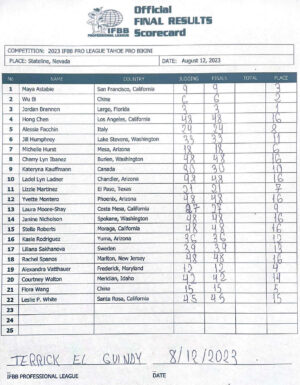 IFBB
PROFESSIONAL LEAGUE
Official
FINAL RESULTS
Scorecard
COMPETITION: 2023 IFBB PRO LEAGUE TAHOE PRO BIKINI
PLACE: Stateline, Nevada DATE: August 12, 2023
No NAME COUNTRY JUDGING FINALS TOTAL PLACE
1 Maya Astabie San Francisco, California 9 9 3
2 Wu Bi China 6 6 2
3 Jordan Brannon Largo, Florida 3 3 1
4 Hong Chen Los Angeles, California 48 48 16
5 Alessia Facchin Italy 24 24 8
6 Jill Humphrey Lake Stevens, Washington 33 33 11
7 Michelle Hurst Mesa, Arizona 18 18 6
8 Cherry Lyn Ibanez Burien, Washington 48 48 16
9 Kateryna Kauffmann Canada 30 30 10
10 Ladel Lyn Ladner Chandler, Arizona 48 48 16
11 Lizzie Martinez El Paso, Texas 21 21 7
12 Yvette Montero Phoenix, Arizona 48 48 16
13 Laura Moore-Shay Costa Mesa, California 27 9
14 Janine Nicholson Spokane, Washington 48 48 16
15 Stella Roberts Moraga, California 48 48 16
16 Kasia Rodriguez Yuma, Arizona 36 36 12
17 Liliana Sakhanova Sweden 39 39 13
18 Rachel Spanos Marlton, New Jersey 48 48 16
19 Alexandra Vatthauer Frederick, Maryland 12 12 4
20 Courtney Walton Meridian, Idaho 42 42 14
21 Flora Wang China 15 15 5
22 Leslie P. White Santa Rosa, California 45 45 15
23
24
25
TERRICK EL GUINDY 8/12/2023
IFBB PROFESSIONAL LEAGUE DATE